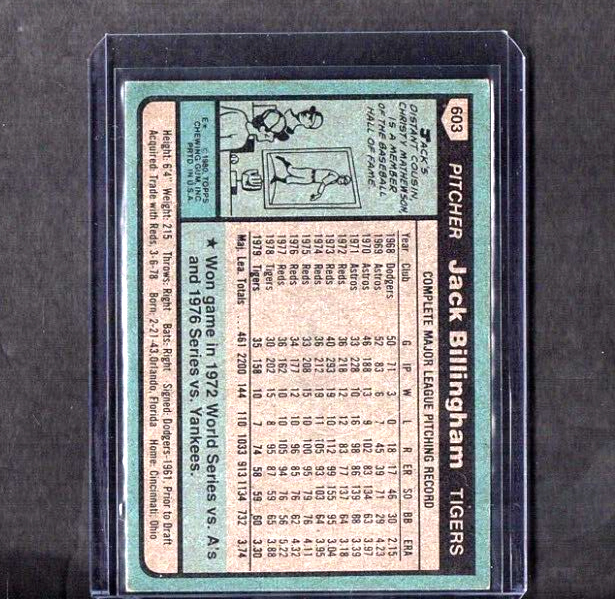 603 PITCHER Jack Billingham TIGERS
JACK'S
DISTANT COUSIN,
CHRISTY MATHEWSON
IS A MEMBER
OF THE BASEBALL
HALL OF FAME
E* © 1980 TOPPS
CHEWING GUM, INC.
PRTD. IN U.S.A.
COMPLETE MAJOR LEAGUE PITCHING RECORD
Year Club G IP W L R ER SO BB ERA
1968 Dodgers 50 71 3 0 18 17 46 30 2.15
1969 Astros 52 83 6 7 45 39 71 29 4.23
1970 Astros 46 188 13 9 83 134 63 3.97
1971 Astros 33 228 10 16 98 86 139 68 3.39
1972 Reds 36 218 12 12 83 77 137 64 3.18
1973 Reds 40 293 19 10 112 99 155 95 3.04
1974 Reds 36 212 19 11 93 103 64 3.95
1975 Reds 33 208 15 10 100 95 79 76 4.11
1976 Reds 34 177 12 10 96 85 76 62 4.32
1977 Reds 36 162 10 10 105 94 76 56 5.22
1978 Tigers 30 202 15 8 95 87 59 65 3.88
1979 Tigers 35 158 10 7 74 58 59 60 3.30
Maj. Lea. Totals 461 2200 144 110 1033 913 1134 732 3.74
★ Won game in 1972 World Series vs. A's
and 1976 Series vs. Yankees.
Height: 6'4" Weight: 215 Throws: Right Bats: Right Signed: Dodgers-1961, Prior to Draft
Acquired: Trade with Reds, 3-6-78 Born: 2-21-43, Orlando, Florida Home: Cincinnati, Ohio